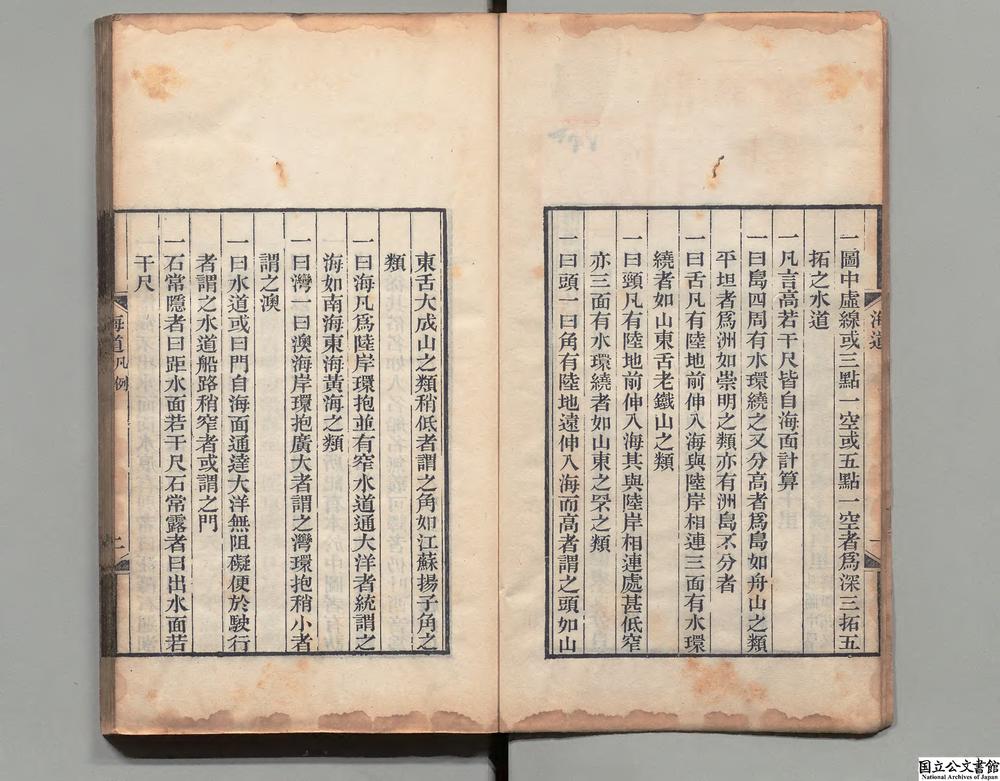 一圖中虛線或三點一空或五點一空者爲深三拓五
拓之水道
一凡言高若干尺皆自海面計算
一曰島四周有水環繞之又分高者爲島如舟山之類
平坦者爲洲如崇明之類亦有洲島不分者
一曰舌凡有陸地前伸入海與陸岸相連三面有水環
繞者如山東舌老鐵山之類
一曰頸凡有陸地前伸入海其與陸岸相連處甚低窄
亦三面有水環繞者如山東之罘之類
一曰頭一曰角有陸地遠伸入海而高者謂之頭如山
東舌大成山之類稍低者謂之角如江蘇揚子角之
類
一曰海凡爲陸岸環抱並有窄水道通大洋者統謂之
海如南海東海黃海之類
一曰灣一曰澳海岸環抱廣大者謂之灣環抱稍小者
謂之澳
一曰水道或曰門自海面通達大洋無阻礙便於駛行
者謂之水道船路稍窄者或謂之門
一石常隱者曰距水面若干尺石常露者曰出水面若
干尺
海道
一
海道凡例
二
国立公文書館
National Archives of Japan